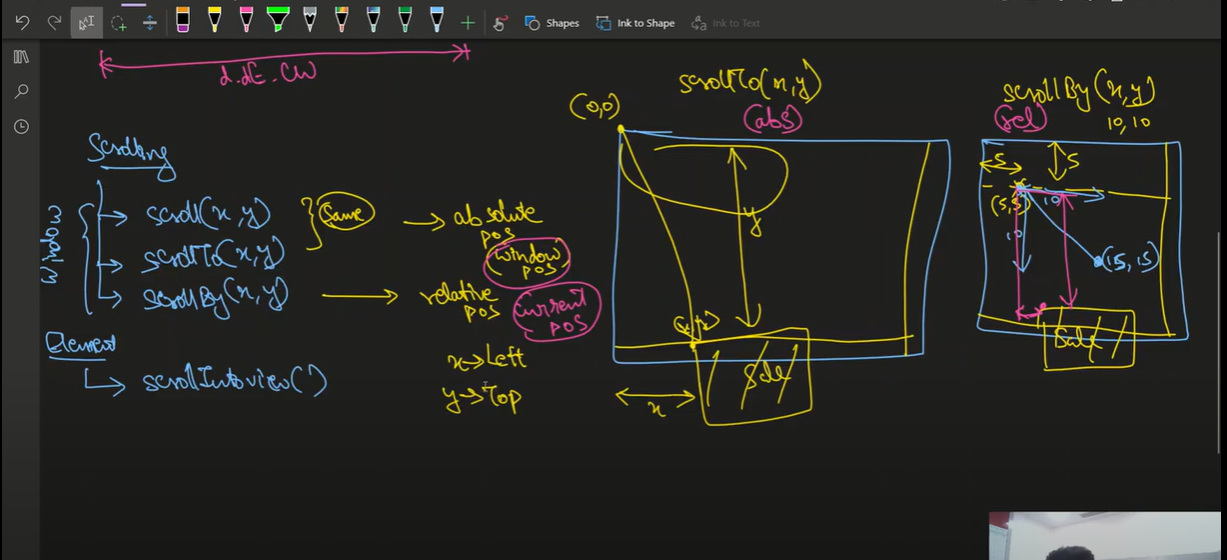 Shapes
Ink to Shape
Ink to Text
d.dE.CW
Scrolling
window
scroll(x,y)
scrollTo(x,y)
scrollBy(x,y)
Same
absolute
pos
window
pos
relative
pos
Current
pos
x→Left
y→Top
Element
scrollIntoview()
scrollTo(x,y)
(abs)
(0,0)
y
x
Sale
scrollBy(x,y)
(rel)
10,10
5
5
(5,5)
10
10
(15,15)
Sale